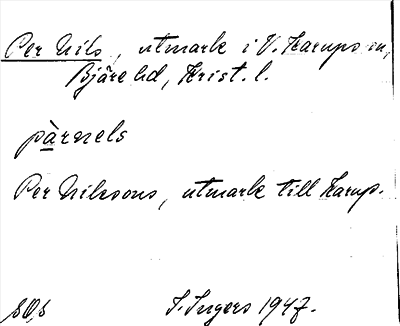 Per Nils, utmark i V. Karups sn,
Bjäre hd, Krist. l.
pàrnels
Per Nilssons, utmark till Karup.
S. Ingers 1947.